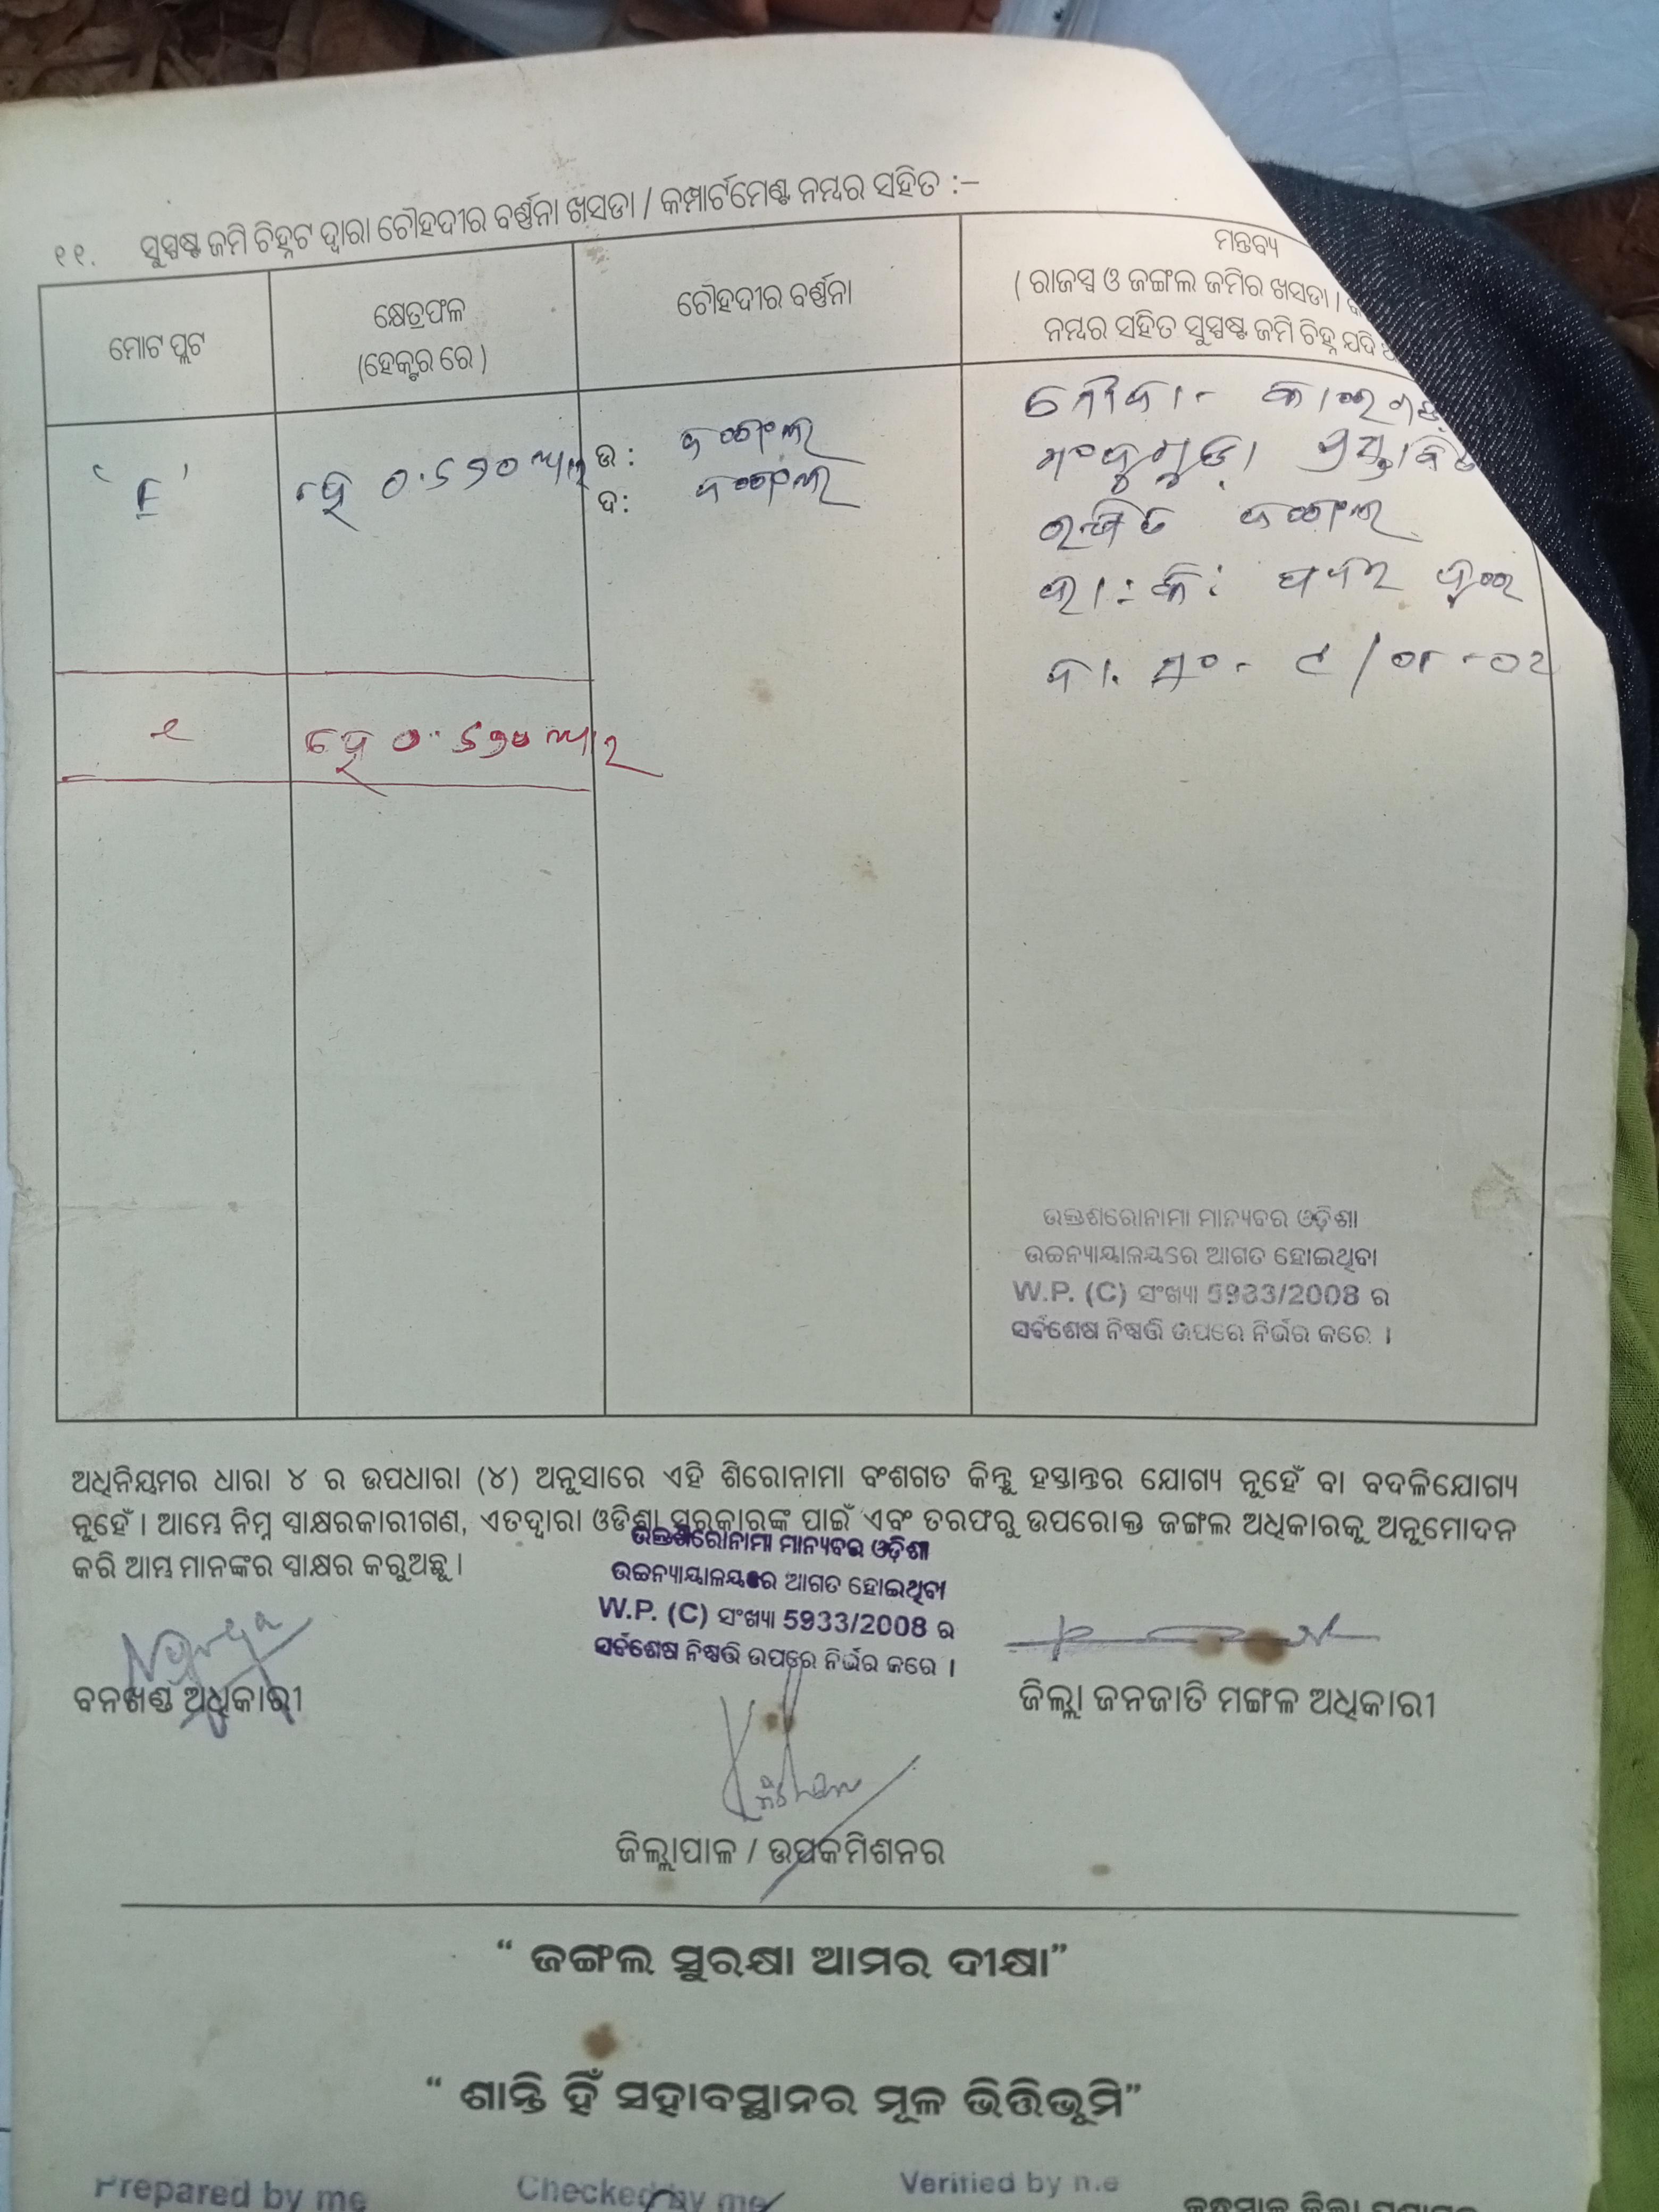 ୧୧. ସୁସ୍ପଷ୍ଟ ଜମି ଚିହ୍ନଟ ଦ୍ୱାରା ଚୌହଦୀର ବର୍ଣ୍ଣନା ଖସଡା / କମ୍ପାର୍ଟମେଣ୍ଟ ନମ୍ବର ସହିତ :–
ମୋଟ ପ୍ଲଟ
କ୍ଷେତ୍ରଫଳ
(ହେକ୍ଟର ରେ)
ଚୌହଦୀର ବର୍ଣ୍ଣନା
ମନ୍ତବ୍ୟ
( ରାଜସ୍ୱ ଓ ଜଙ୍ଗଲ ଜମିର ଖସଡା /
ନମ୍ବର ସହିତ ସୁସ୍ପଷ୍ଟ ଜମି ଚିହ୍ନ ଯଦି
'E'
ହେ ୦.୫୨୦ ଆର
ଉ: ଜଙ୍ଗଲ
ଦ: ଜଙ୍ଗଲ
ମୌଜା-
ରକ୍ଷିତ ଜଙ୍ଗଲ
୧
ହେ ୦.୫୨୦ ଆର
ଉକ୍ତଶରୋନାମା ମାନ୍ୟବର ଓଡ଼ିଶା
ଉଚ୍ଚନ୍ୟାୟାଳୟରେ ଆଗତ ହୋଇଥିବା
W.P. (C) ସଂଖ୍ୟା 5933/2008 ର
ସର୍ବଶେଷ ନିଷ୍ପତ୍ତି ଉପରେ ନିର୍ଭର କରେ ।
ଅଧିନିୟମର ଧାରା ୪ ର ଉପଧାରା (୪) ଅନୁସାରେ ଏହି ଶିରୋନାମା ବଂଶଗତ କିନ୍ତୁ ହସ୍ତାନ୍ତର ଯୋଗ୍ୟ ନୁହେଁ ବା ବଦଳିଯୋଗ୍ୟ
ନୁହେଁ । ଆମ୍ଭେ ନିମ୍ନ ସ୍ୱାକ୍ଷରକାରୀଗଣ, ଏତଦ୍ୱାରା ଓଡିଶା ସରକାରଙ୍କ ପାଇଁ ଏବଂ ତରଫରୁ ଉପରୋକ୍ତ ଜଙ୍ଗଲ ଅଧିକାରକୁ ଅନୁମୋଦନ
କରି ଆମ୍ଭ ମାନଙ୍କର ସ୍ୱାକ୍ଷର କରୁଅଛୁ ।
ଉକ୍ତଶରୋନାମା ମାନ୍ୟବର ଓଡ଼ିଶା
ଉଚ୍ଚନ୍ୟାୟାଳୟରେ ଆଗତ ହୋଇଥିବା
W.P. (C) ସଂଖ୍ୟା 5933/2008 ର
ସର୍ବଶେଷ ନିଷ୍ପତ୍ତି ଉପରେ ନିର୍ଭର କରେ ।
ବନଖଣ୍ଡ ଅଧିକାରୀ
ଜିଲ୍ଲା ଜନଜାତି ମଙ୍ଗଳ ଅଧିକାରୀ
ଜିଲ୍ଲାପାଳ / ଉପକମିଶନର
“ ଜଙ୍ଗଲ ସୁରକ୍ଷା ଆମର ଦୀକ୍ଷା”
“ ଶାନ୍ତି ହିଁ ସହାବସ୍ଥାନର ମୂଳ ଭିତ୍ତିଭୂମି”
Prepared by me Checked by me Verified by